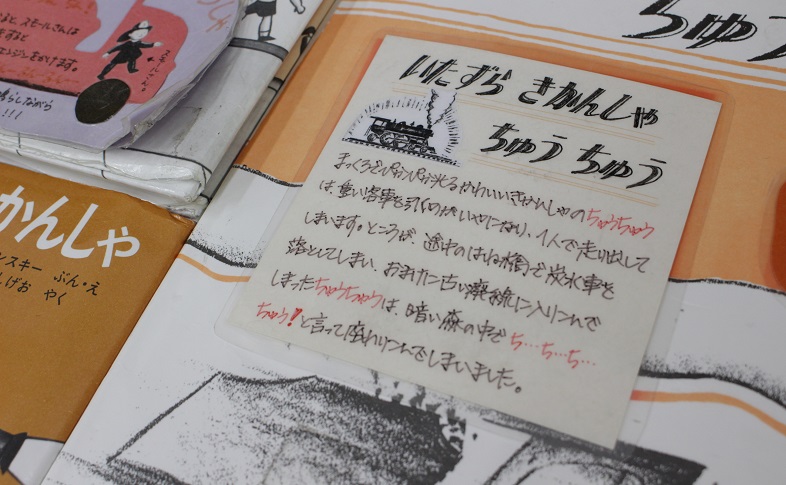 なると、スモールさんは
をすると
エンジンをかけます。
スモールさん
鳴らしながら
!!!
ちゅう
いたずら きかんしゃ
ちゅう ちゅう
まっくろでぴかぴか光るかわいいきかんしゃのちゅうちゅう
は、重い客車を引くのがいやになり、1人で走り出して
しまいます。ところが、途中のはね橋で炭水車を
落としてしまい、おまけに古い廃線に入りこんで
しまったちゅうちゅうは、暗い森の中でち…ち…ち…
ちゅう!と言って座りこんでしまいました。
かんしゃ
ンスキー ぶん・え
しげお やく